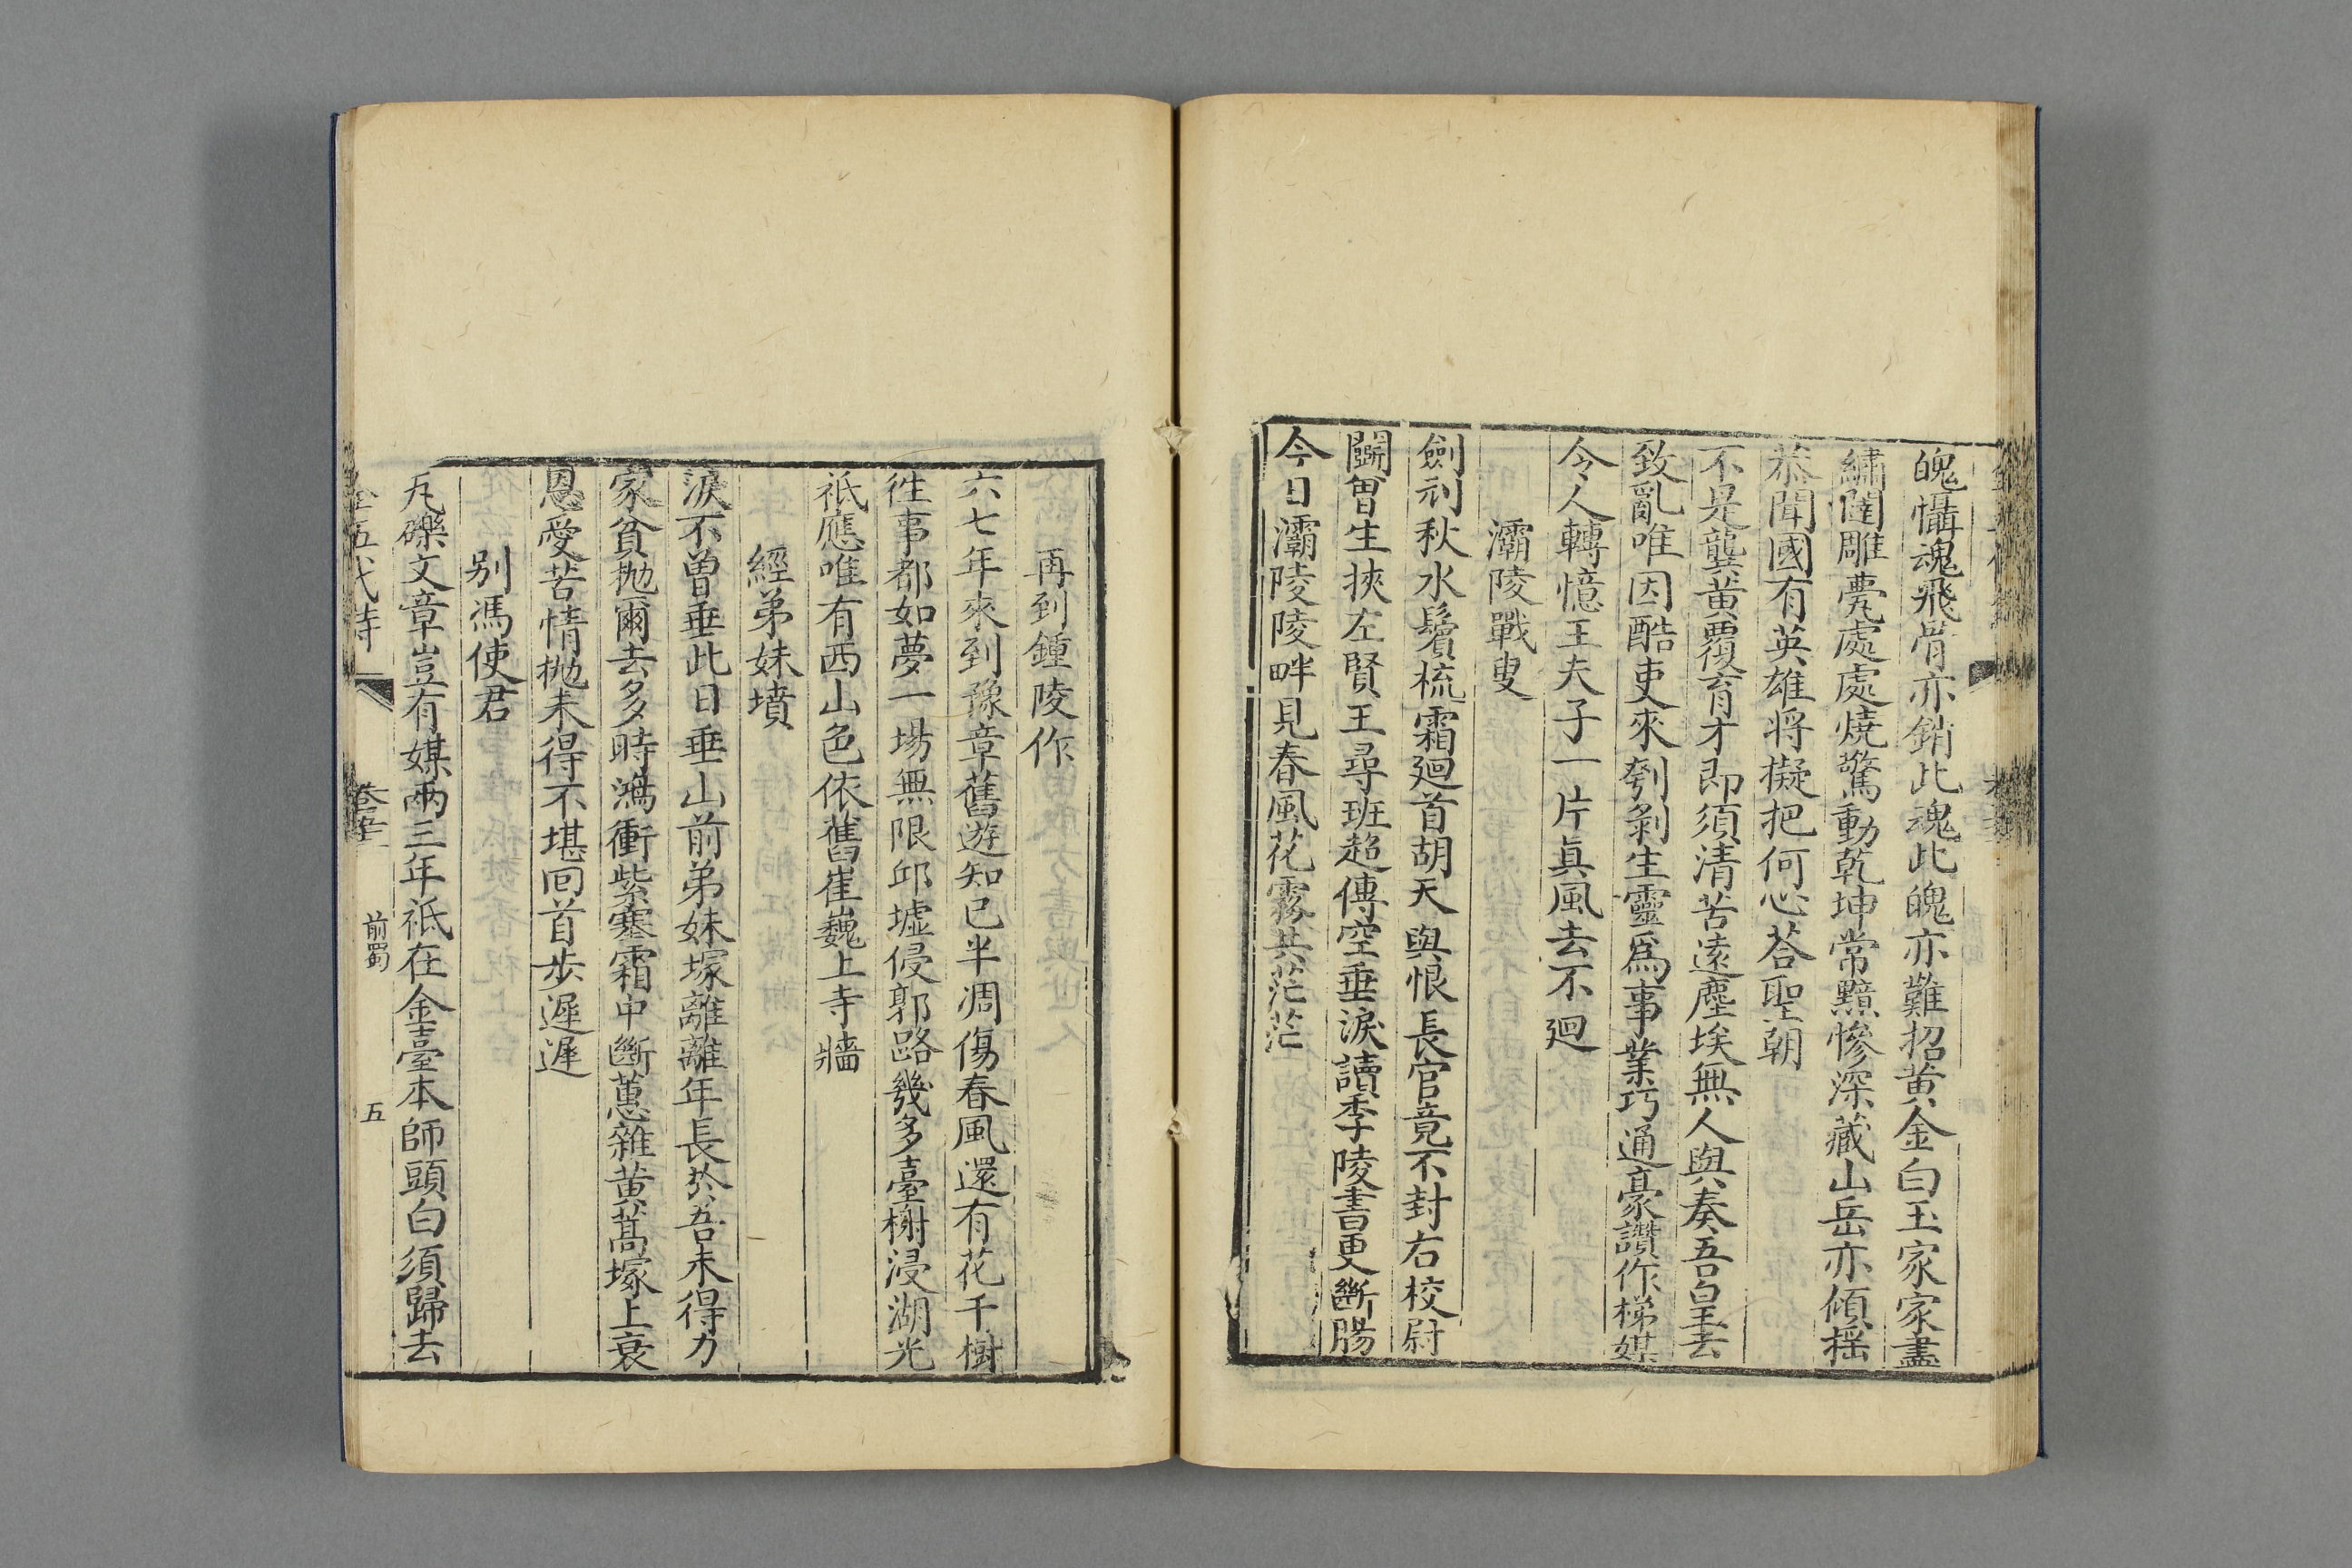 魄懾魂飛骨亦銷此魂此魄亦難招黄金白玉家家盡
繡闥雕甍處處燒驚動乾坤常黯慘深藏山岳亦傾揺
恭聞國有英雄将擬把何心荅聖朝
不是龔黄覆育才即須清苦遠塵埃無人與奏吾皇去
致亂唯因酷吏來刳剝生靈爲事業巧通豪讚作梯媒
令人轉憶王夫子一片眞風去不廻
灞陵戰叟
劍刓秋水鬢梳霜廻首胡天與恨長官竟不封右校尉
鬭曾生挾左賢王尋班超傳空垂淚讀李陵書更斷腸
今日灞陵陵畔見春風花霧共茫茫
再到鍾陵作
六七年來到豫章舊遊知己半凋傷春風還有花千樹
徃事都如夢一場無限邱墟侵郭路幾多臺榭浸湖光
祇應唯有西山色依舊崔巍上寺牆
經弟妹墳
淚不曾垂此日垂山前弟妹塚離離年長於吾未得力
家貧抛爾去多時鴻衝紫塞霜中斷蕙雜黄蒿塚上衰
恩愛苦情抛未得不堪囘首步遲遲
别馮使君
丸礫文章豈有媒兩三年祇在金臺本師頭白須歸去
全五代詩
前蜀
五